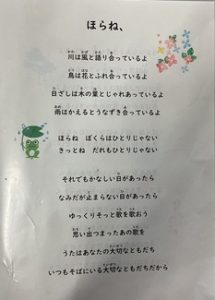 ほらね、
川は風と語り合っているよ
鳥は花とふれ合っているよ
日ざしは木の葉とじゃれあっているよ
雨はかえるとうなずき合っているよ
ほらね　ぼくらはひとりじゃない
きっとね　だれもひとりじゃない
それでもかなしい日があったら
なみだが止まらない日があったら
ゆっくりそっと歌を歌おう
思い出つまったあの歌を
うたはあなたの大切なともだち
いつもそばにいる大切なともだちだから